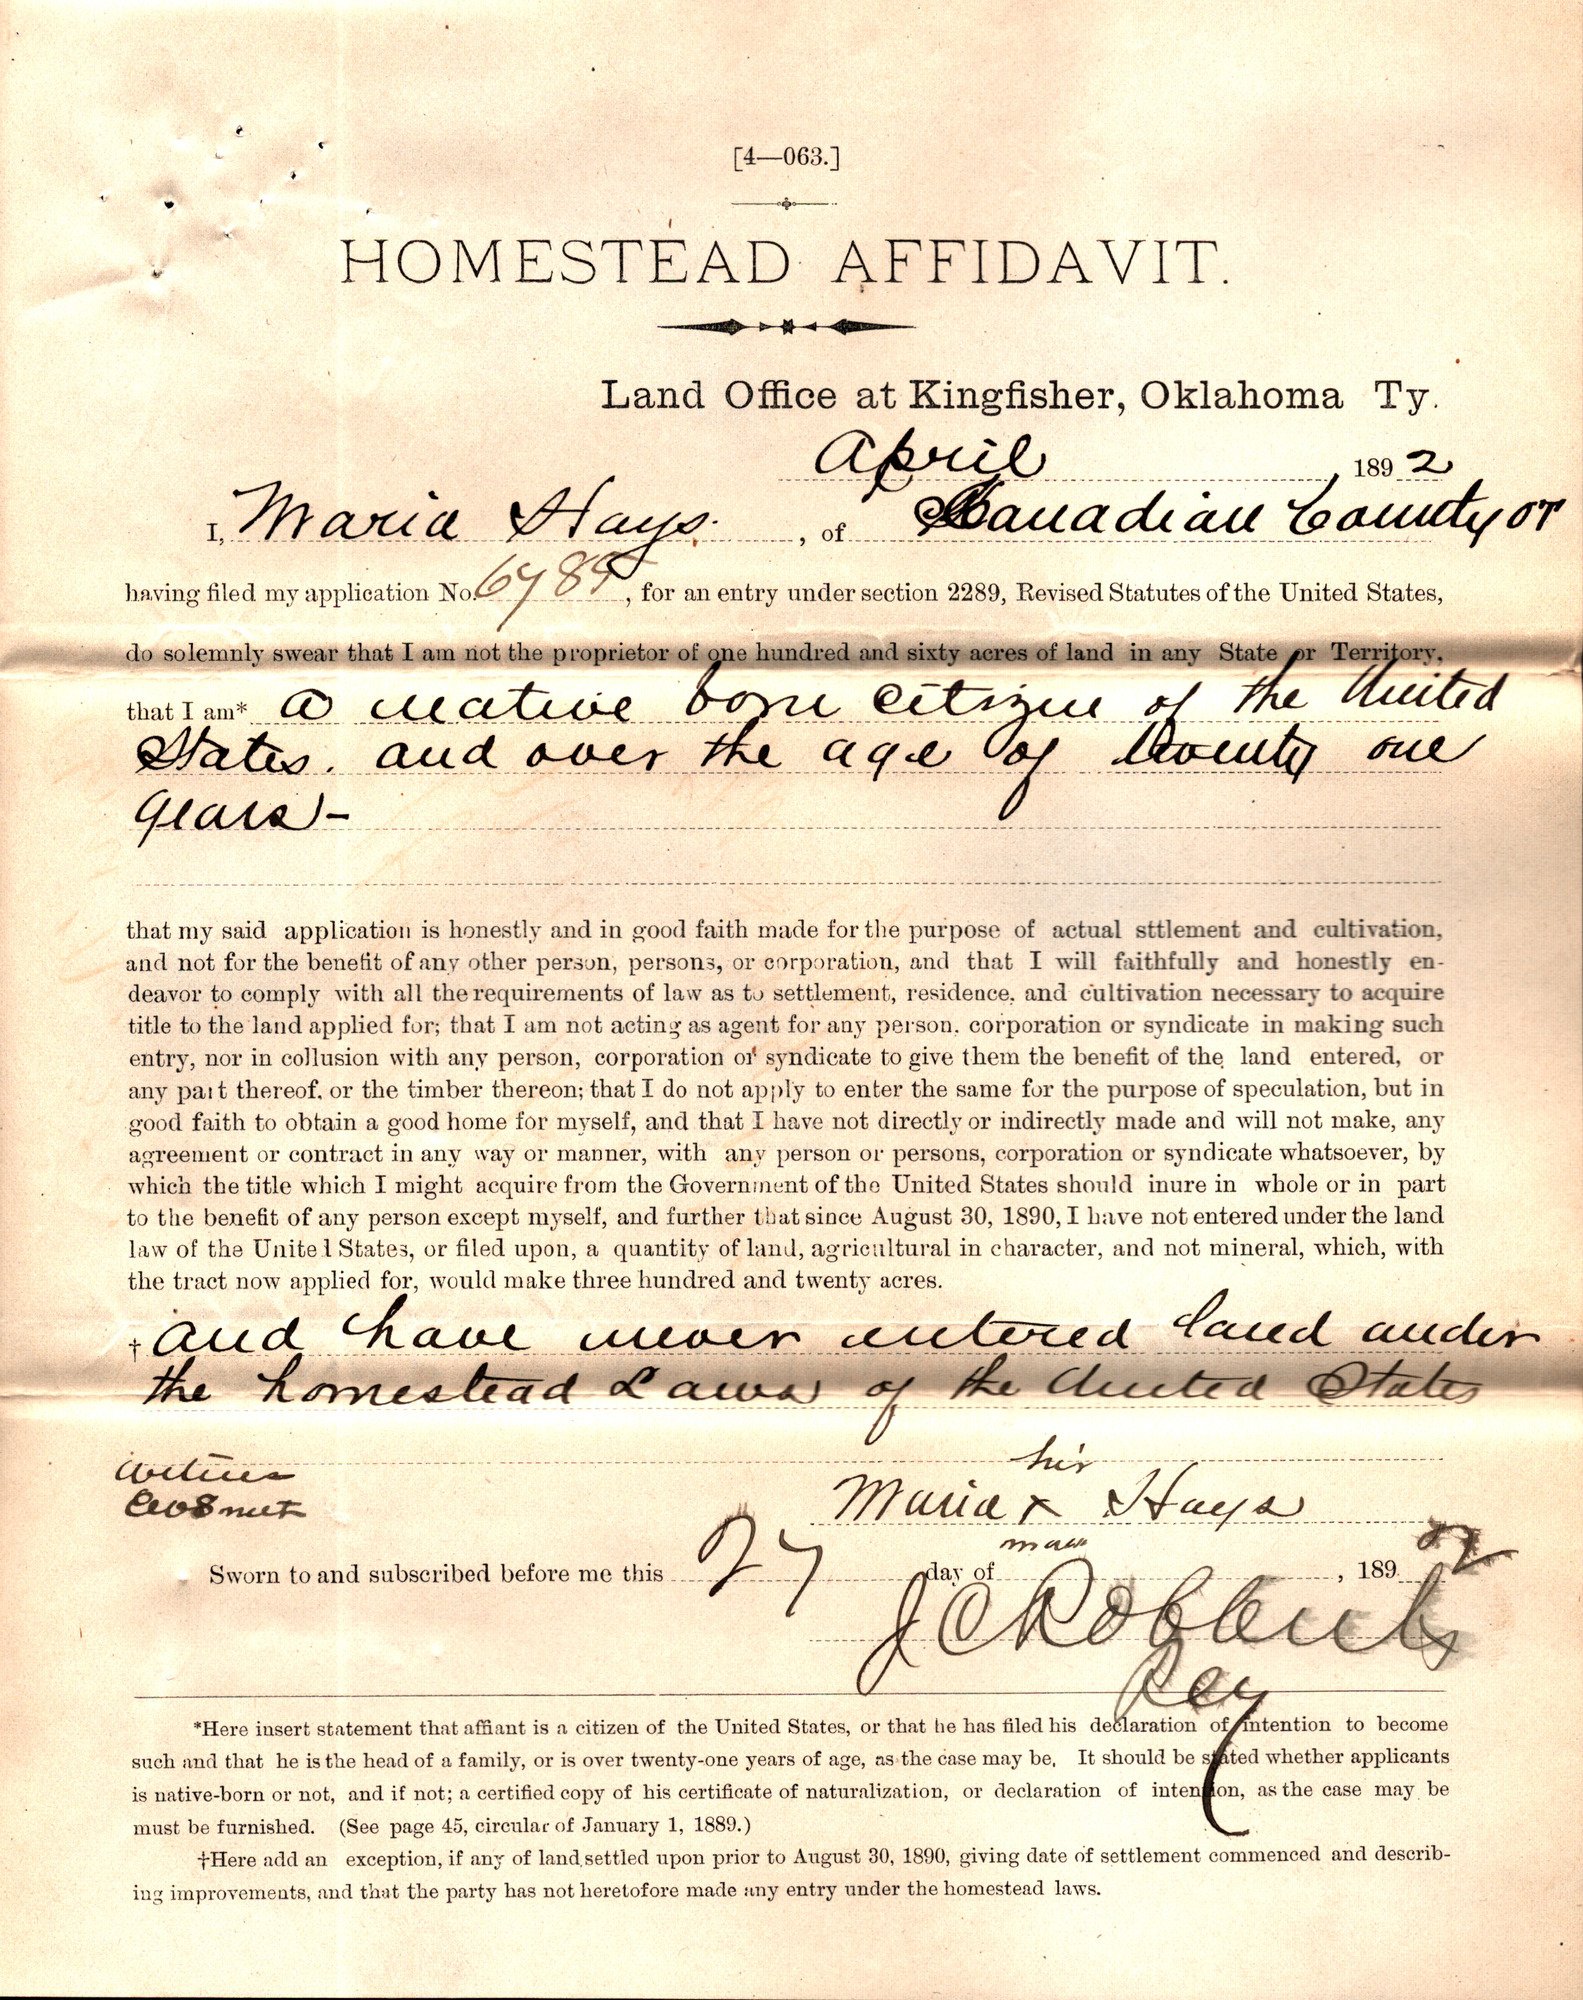 [4—063.]
HOMESTEAD AFFIDAVIT.
Land Office at Kingfisher, Oklahoma Ty.
April , 1892
I, Maria Hays. , of Canadian County OT
having filed my application No. , for an entry under section 2289, Revised Statutes of the United States,
do solemnly swear that I am not the proprietor of one hundred and sixty acres of land in any State or Territory,
that I am* a native born citizen of the United
States. and over the age of twenty one
years —
that my said application is honestly and in good faith made for the purpose of actual sttlement and cultivation,
and not for the benefit of any other person, persons, or corporation, and that I will faithfully and honestly en-
deavor to comply with all the requirements of law as to settlement, residence, and cultivation necessary to acquire
title to the land applied for; that I am not acting as agent for any person, corporation or syndicate in making such
entry, nor in collusion with any person, corporation or syndicate to give them the benefit of the land entered, or
any part thereof, or the timber thereon; that I do not apply to enter the same for the purpose of speculation, but in
good faith to obtain a good home for myself, and that I have not directly or indirectly made and will not make, any
agreement or contract in any way or manner, with any person or persons, corporation or syndicate whatsoever, by
which the title which I might acquire from the Government of the United States should inure in whole or in part
to the benefit of any person except myself, and further that since August 30, 1890, I have not entered under the land
law of the United States, or filed upon, a quantity of land, agricultural in character, and not mineral, which, with
the tract now applied for, would make three hundred and twenty acres.
† and have never entered land under
the homestead Laws of the United States
Witness
his
Maria x Hays
mark
Sworn to and subscribed before me this 27 day of , 1892
J C Robberts
Rec
*Here insert statement that affiant is a citizen of the United States, or that he has filed his declaration of intention to become
such and that he is the head of a family, or is over twenty-one years of age, as the case may be. It should be stated whether applicants
is native-born or not, and if not; a certified copy of his certificate of naturalization, or declaration of intention, as the case may be
must be furnished. (See page 45, circular of January 1, 1889.)
†Here add an exception, if any of land settled upon prior to August 30, 1890, giving date of settlement commenced and describ-
ing improvements, and that the party has not heretofore made any entry under the homestead laws.